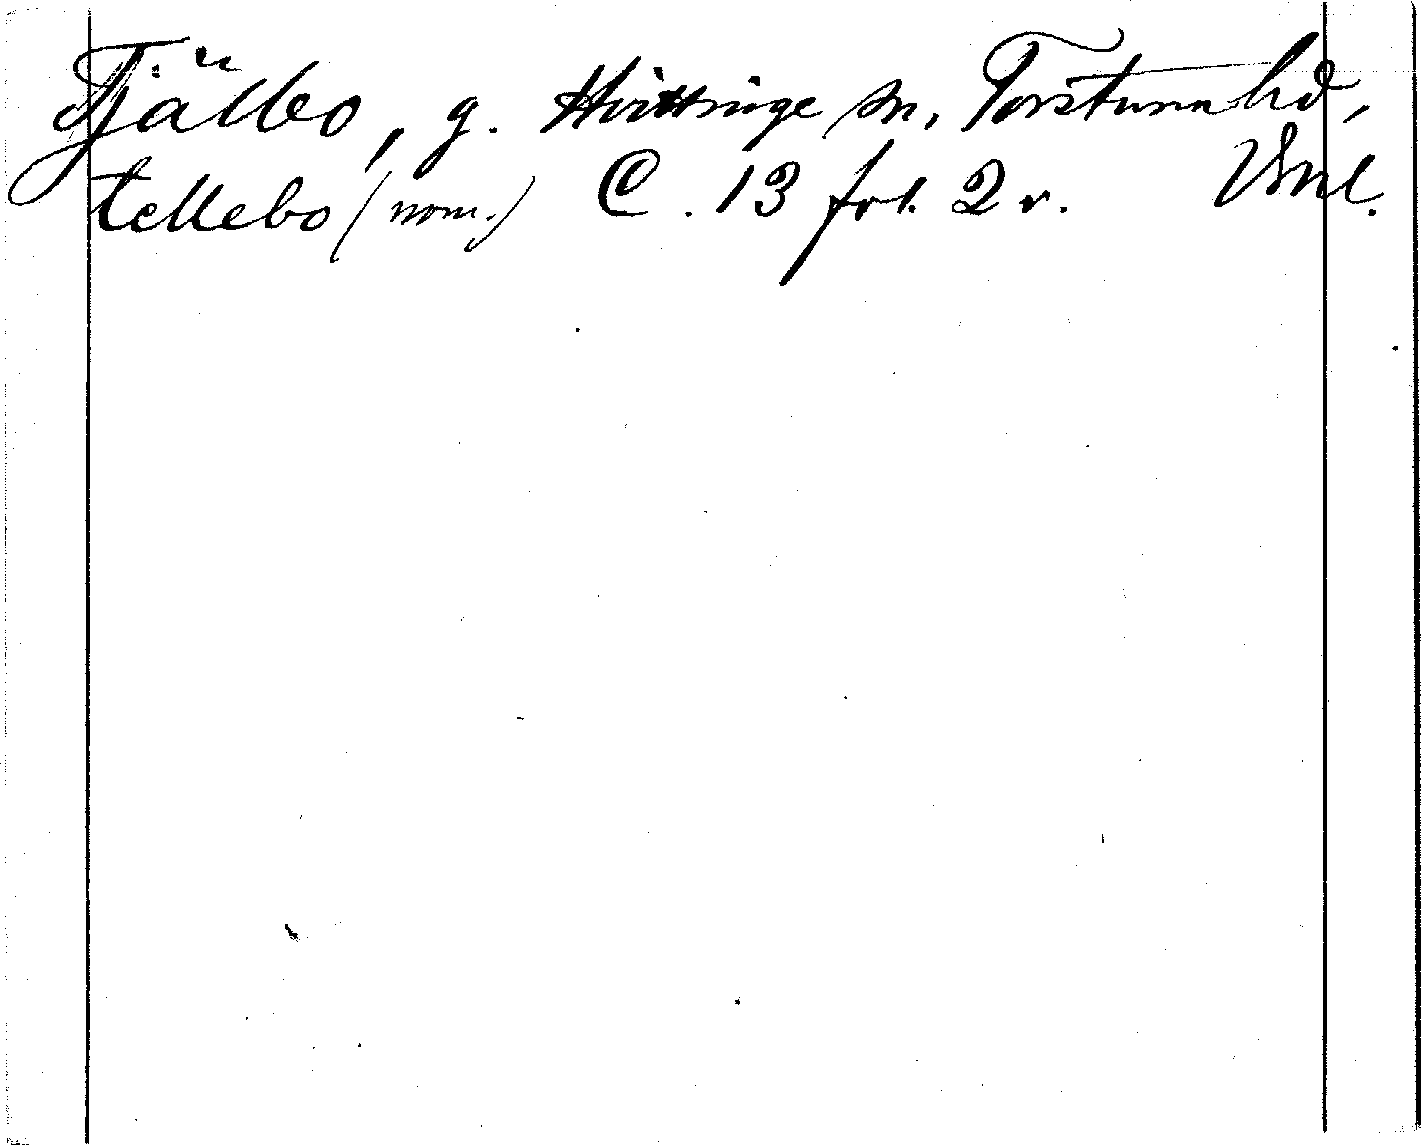 Tjälbo, g. Hvittinge sn, Torstuna hd,
tellebo (nom.) C. 13 fol. 2 r. Vsml.